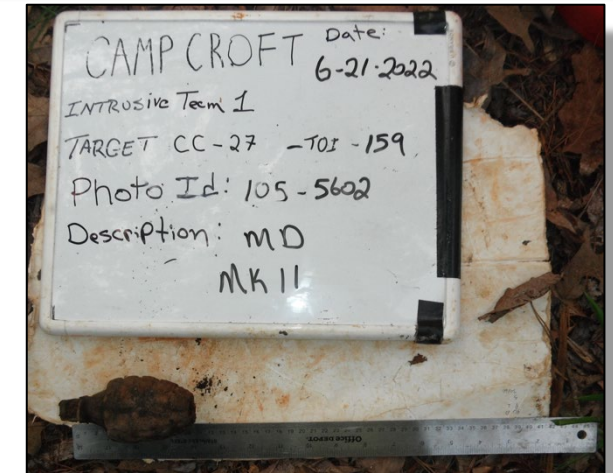 CAMP CROFT Date:
6-21-2022
INTRUSIVE TEAM 1
TARGET CC-27 -TOI-159
Photo Id: 105-5602
Description: MD
MK II
Office DEPOT.